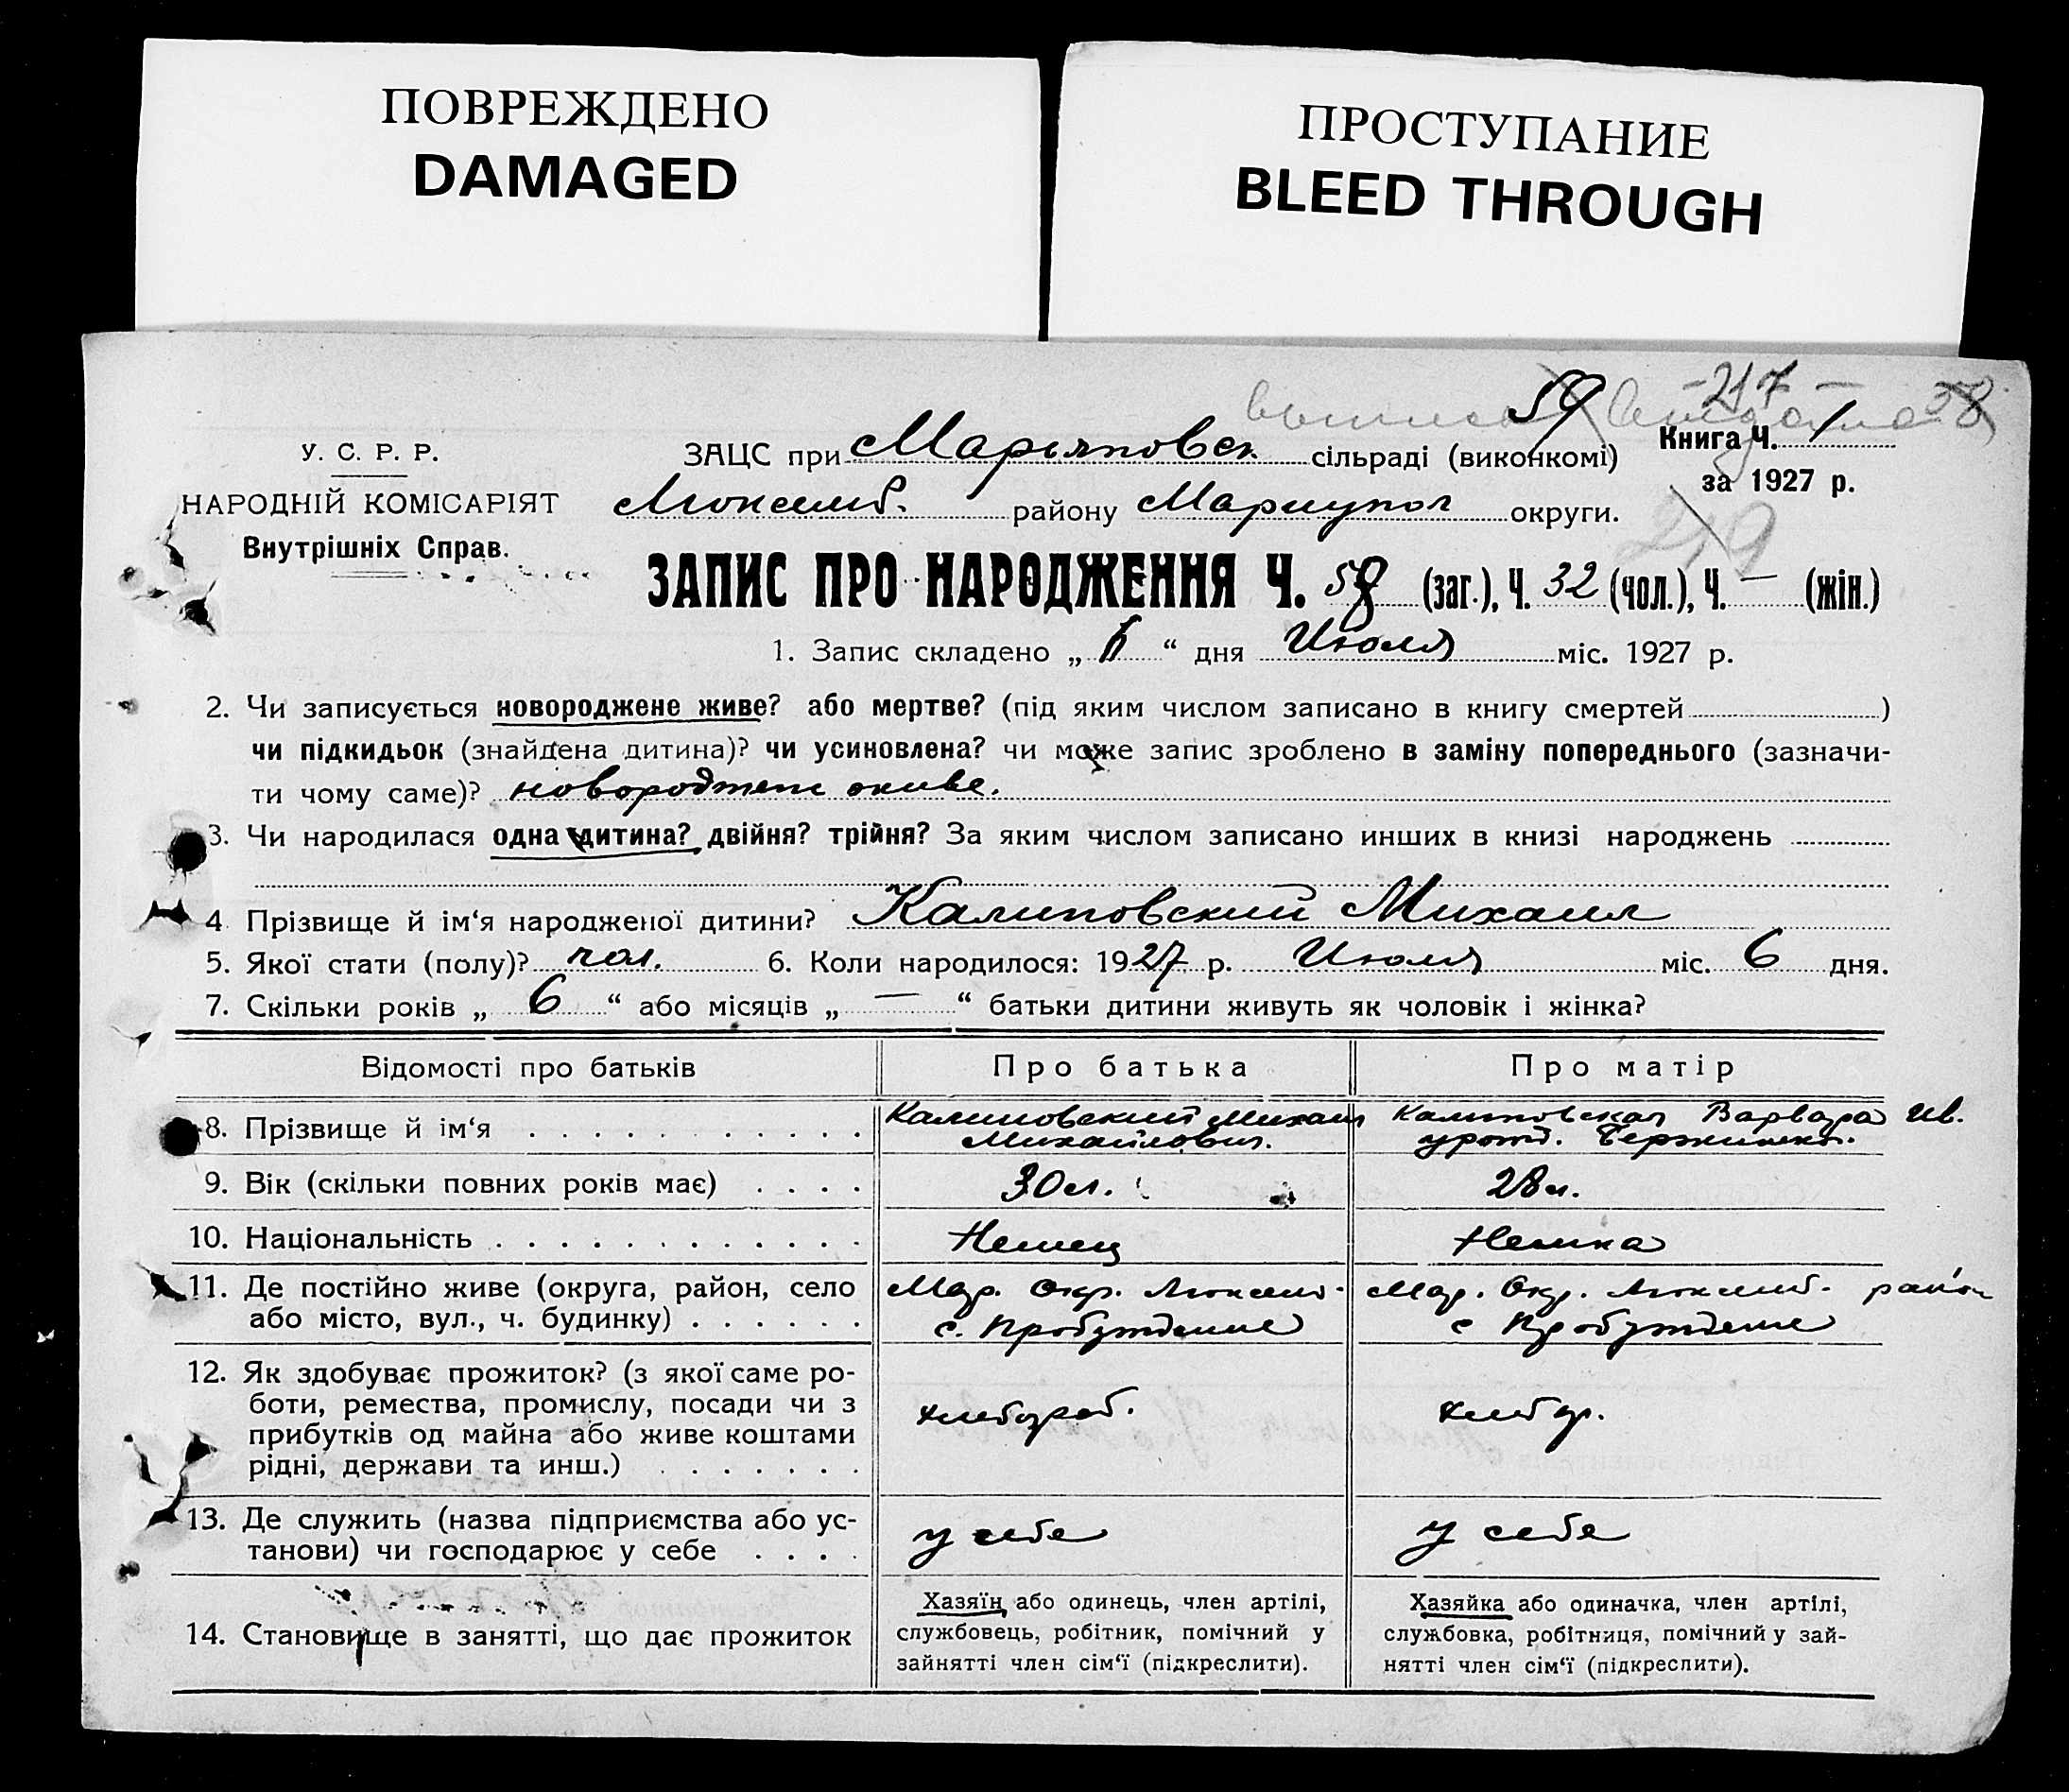 ПОВРЕЖДЕНО
DAMAGED
ПРОСТУПАНИЕ
BLEED THROUGH
59 -217- 58
У. С. Р. Р.
НАРОДНІЙ КОМІСАРІЯТ
Внутрішніх Справ.
ЗАЦС при Марьяновск сільраді (виконкомі)
Книга Ч. 1
за 1927 р.
Люксемб. району Мариупол округи.
219
ЗАПИС ПРО НАРОДЖЕННЯ Ч. 58 (заг.), Ч. 32 (чол.), Ч. — (жін.)
1. Запис складено „ “ дня Июля міс. 1927 р.
2. Чи записується новороджене живе? або мертве? (під яким числом записано в книгу смертей )
чи підкидьок (знайдена дитина)? чи усиновлена? чи може запис зроблено в заміну попереднього (зазначи-
ти чому саме)? новороджене живе.
3. Чи народилася одна дитина? двійня? трійня? За яким числом записано инших в книзі народжень
4 Прізвище й ім‘я народженої дитини? Калиновский Михаил
5. Якої стати (полу)? чол. 6. Коли народилося: 1927 р. Июля міс. 6 дня.
7. Скільки років „ 6 “ або місяців „ — “ батьки дитини живуть як чоловік і жінка?
Відомості про батьків
Про батька
Про матір
8. Прізвище й ім‘я
Калиновский Михаил
Михайлович.
Калиновская Варвара Ив.
урожд.
9. Вік (скільки повних років має)
30 л.
28 л.
10. Національність
Немец
Немка
11. Де постійно живе (округа, район, село
або місто, вул., ч. будинку)
Мар. Окр. Люксемб.
с. Пробуждение
Мар. Окр. Люксемб. район
с Пробуждение
12. Як здобуває прожиток? (з якої саме ро-
боти, ремества, промислу, посади чи з
прибутків од майна або живе коштами
рідні, держави та инш.)
хлебороб.
хлебор.
13. Де служить (назва підприємства або ус-
танови) чи господарює у себе
у себе
у себе
14. Становище в занятті, що дає прожиток
Хазяїн або одинець, член артілі,
службовець, робітник, помічний у
зайнятті член сім‘ї (підкреслити).
Хазяйка або одиначка, член артілі,
службовка, робітниця, помічний у зай-
нятті член сім‘ї (підкреслити).